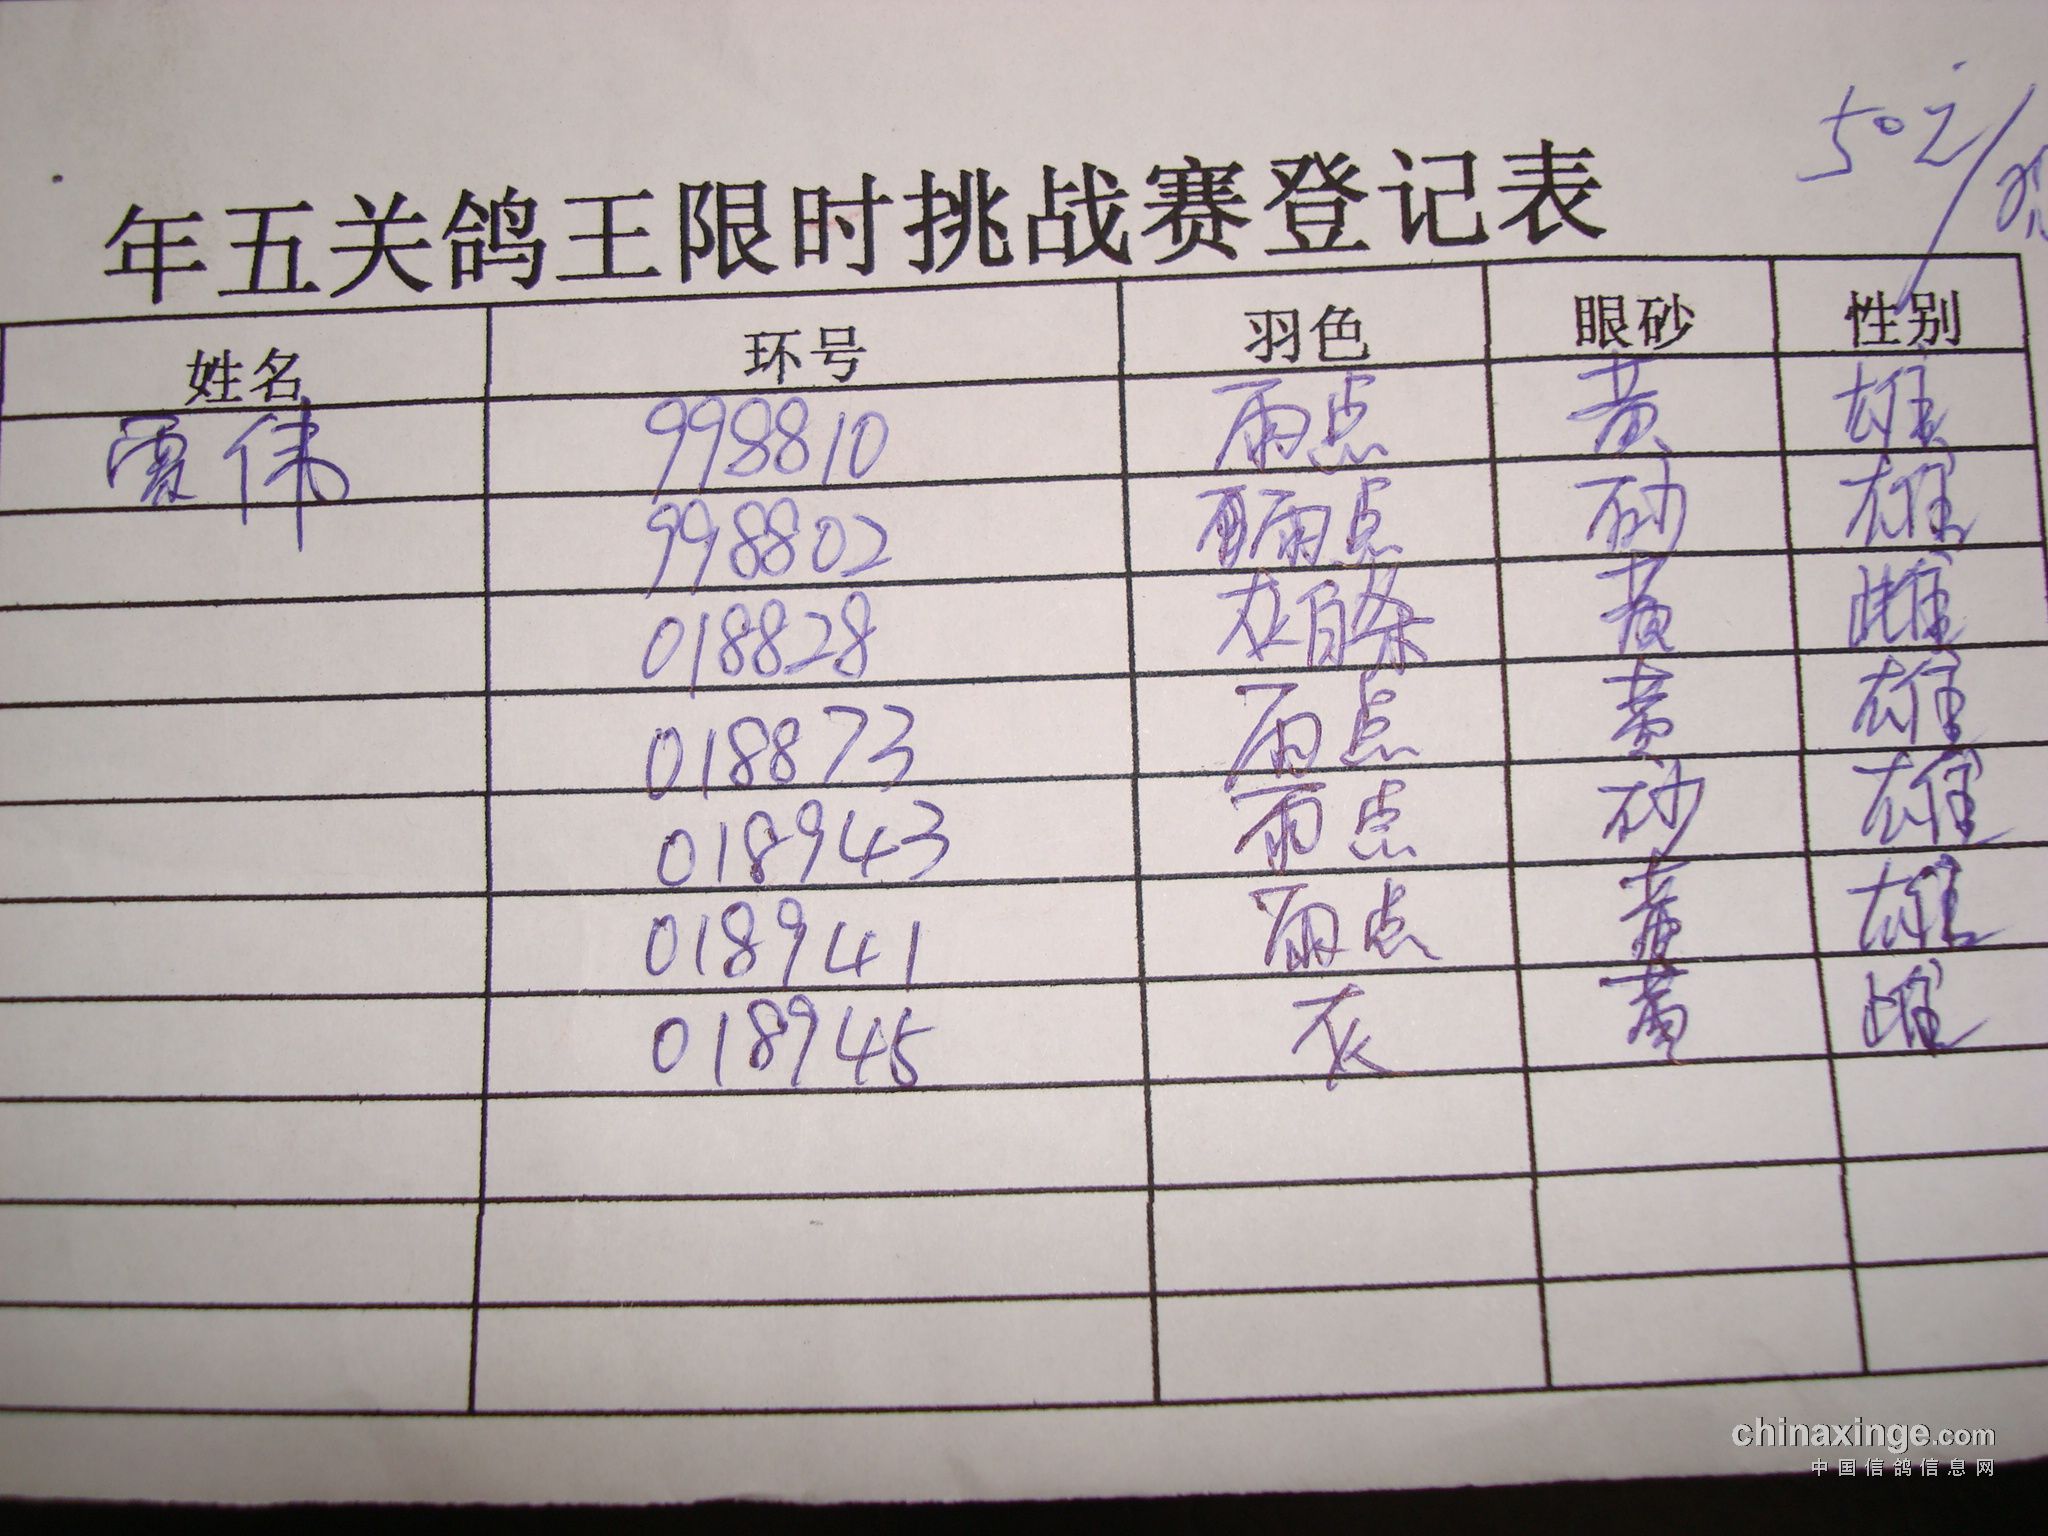 50元/观
年五关鸽王限时挑战赛登记表
姓名 环号 羽色 眼砂 性别
贾伟 998810 雨点 黄 雄
998802 雨点 砂 雄
018828 灰白条 黄 雌
018873 雨点 黄 雄
018943 雨点 砂 雄
018941 雨点 黄 雄
018945 灰 黄 雌
chinaxinge.com
中国信鸽信息网